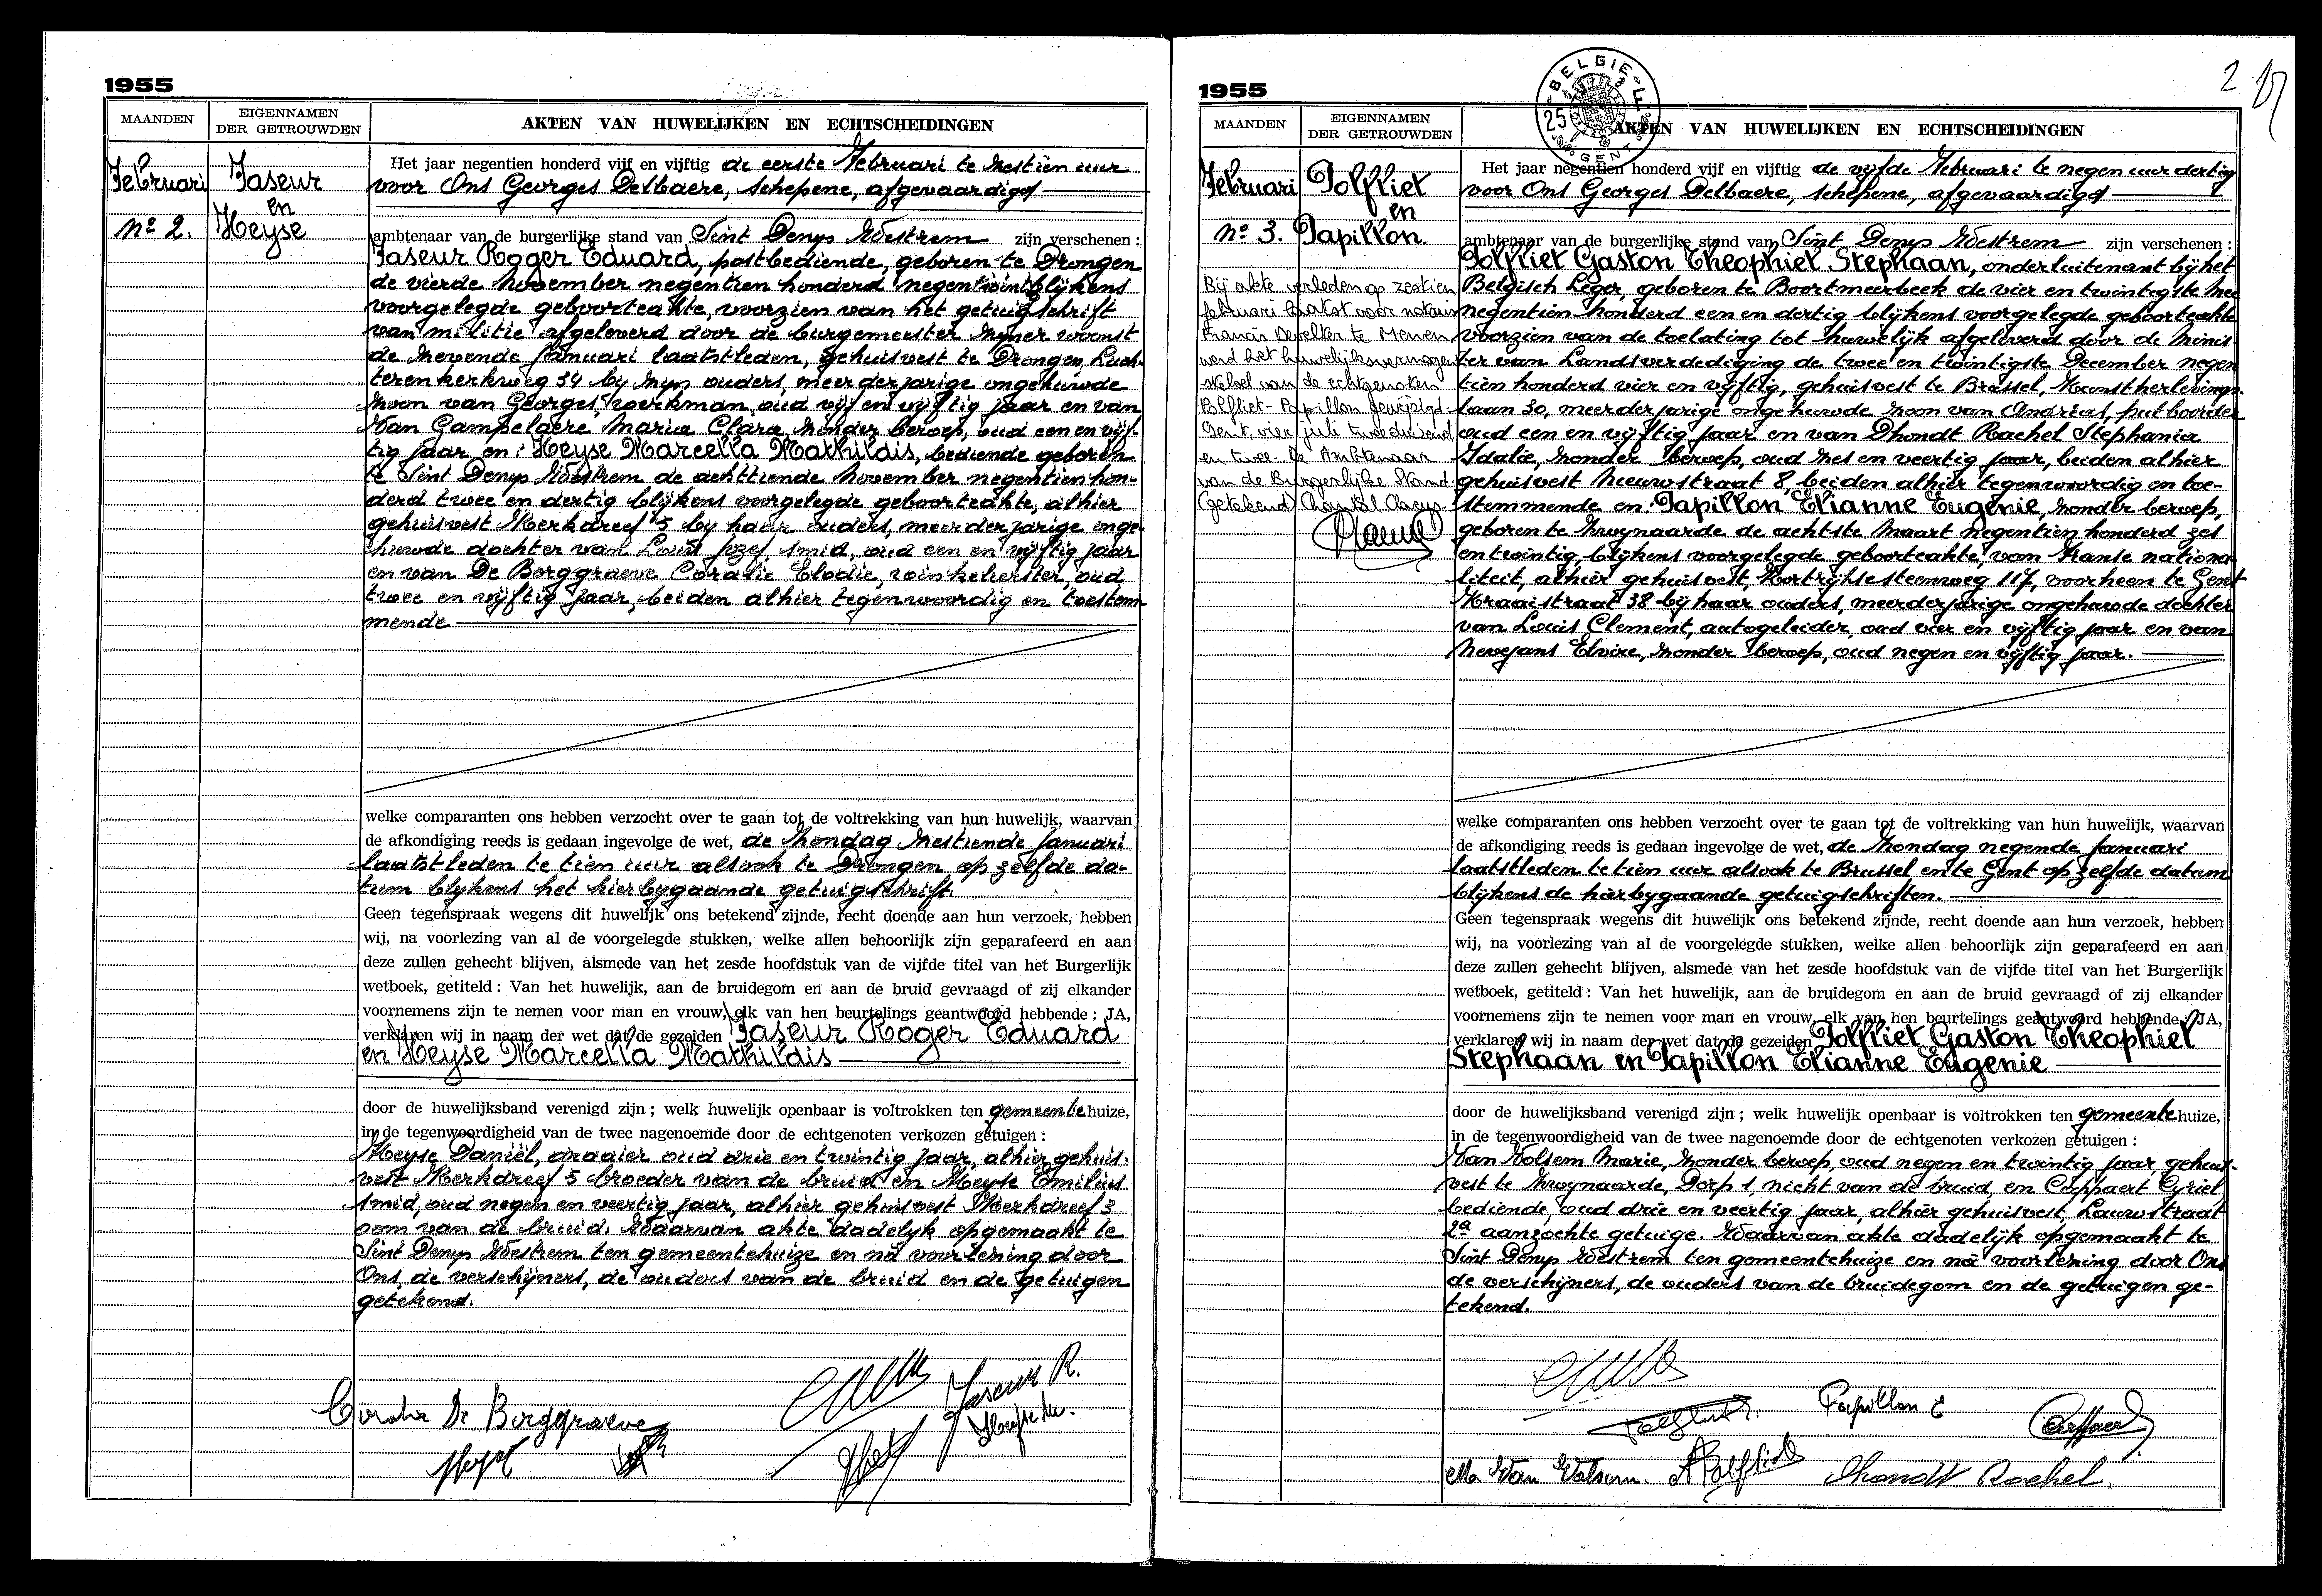 1955
MAANDEN
EIGENNAMEN
DER GETROUWDEN
AKTEN VAN HUWELIJKEN EN ECHTSCHEIDINGEN
Februari
Jaseur
en
Heyse
No 2.
Het jaar negentien honderd vijf en vijftig de eerste Februari te zestien uur
voor Ons Georges Delbaere, schepene, afgevaardigd
ambtenaar van de burgerlijke stand van Sint Denys Westrem zijn verschenen :
Jaseur Roger Eduard, postbediende, geboren te Drongen
de vierde November negentien honderd negentwintig blijkens
voorgelegde geboorteakte, voorzien van het getuigschrift
van militie afgeleverd door de burgemeester zijner woonst
de zevende Januari laatstleden, gehuisvest te Drongen, Luch-
terenkerkweg 34 bij zijn ouders, meerderjarige ongehuwde
zoon van Georges, werkman, oud vijf en vijftig jaar en van
Van Campelaere Maria Clara, zonder beroep, oud een en vijf-
tig jaar en: Heyse Marcella Mathildis, bediende geboren
te Sint Denys Westrem de achttiende November negentien hon-
derd twee en dertig blijkens voorgelegde geboorteakte, alhier
gehuisvest Kerkdreef 5 bij haar ouders, meerderjarige onge-
huwde dochter van Louis Jozef, smid, oud een en vijftig jaar
en van De Borggraeve Coralie Elodie, winkelierster, oud
twee en vijftig jaar, beiden alhier tegenwoordig en toestem-
mende
welke comparanten ons hebben verzocht over te gaan tot de voltrekking van hun huwelijk, waarvan
de afkondiging reeds is gedaan ingevolge de wet, de Zondag zestiende Januari
laatstleden te tien uur alsook te Drongen op zelfde da-
tum blijkens het hierbijgaande getuigschrift.
Geen tegenspraak wegens dit huwelijk ons betekend zijnde, recht doende aan hun verzoek, hebben
wij, na voorlezing van al de voorgelegde stukken, welke allen behoorlijk zijn geparafeerd en aan
deze zullen gehecht blijven, alsmede van het zesde hoofdstuk van de vijfde titel van het Burgerlijk
wetboek, getiteld : Van het huwelijk, aan de bruidegom en aan de bruid gevraagd of zij elkander
voornemens zijn te nemen voor man en vrouw, elk van hen beurtelings geantwoord hebbende : JA,
verklaren wij in naam der wet dat de gezeiden Jaseur Roger Eduard
en Heyse Marcella Mathildis
door de huwelijksband verenigd zijn ; welk huwelijk openbaar is voltrokken ten gemeentehuize,
in de tegenwoordigheid van de twee nagenoemde door de echtgenoten verkozen getuigen :
Heyse Daniël, draaier oud drie en twintig jaar, alhier gehuis-
vest Kerkdreef 5 broeder van de bruid en Heyse Emilius
smid, oud negen en veertig jaar, alhier gehuisvest Kerkdreef 3
oom van de bruid. Waarvan akte dadelijk opgemaakt te
Sint Denys Westrem ten gemeentehuize en na voorlezing door
Ons, de verschijners, de ouders van de bruid en de getuigen
getekend.
Jaseur R.
De Borggraeve
1955
2
BELGIE
25
GENT
MAANDEN
EIGENNAMEN
DER GETROUWDEN
AKTEN VAN HUWELIJKEN EN ECHTSCHEIDINGEN
Februari
Polfliet
en
Papillon.
No 3.
Bij akte verleden op zestien
februari laatst voor notaris
Francis Devolder te Menen
werd het huwelijksvermogen
stelsel van de echtgenoten
Polfliet - Papillon gewijzigd.
Gent, vier juli tweeduizend
en twee. De Ambtenaar
van de Burgerlijke Stand.
(Getekend) Chantal Claeys
Het jaar negentien honderd vijf en vijftig de vijfde Februari te negen uur dertig
voor Ons Georges Delbaere, schepene, afgevaardigd
ambtenaar van de burgerlijke stand van Sint Denys Westrem zijn verschenen :
Polfliet Gaston Theophiel Stephaan, onderluitenant bij het
Belgisch Leger, geboren te Boortmeerbeek de vier en twintigste Mei
negentien honderd een en dertig blijkens voorgelegde geboorteakte
voorzien van de toelating tot huwelijk afgeleverd door de Minis
ter van Landsverdediging de twee en twintigste December negen
tien honderd vier en vijftig, gehuisvest te Brussel, Kunstherlevings-
laan 30, meerderjarige ongehuwde zoon van Andreas, putboorder
oud een en vijftig jaar en van Dhondt Rachel Stephania
Idalie, zonder beroep, oud zes en veertig jaar, beiden alhier
gehuisvest Nieuwstraat 8, beiden alhier tegenwoordig en toe-
stemmende en: Papillon Elianne Eugenie, zonder beroep,
geboren te Zwijnaarde de achtste Maart negentien honderd zes
en twintig, blijkens voorgelegde geboorteakte, van Franse nationa-
liteit, alhier gehuisvest, Kortrijksesteenweg 117, voorheen te Gent
Kraaistraat 38 bij haar ouders, meerderjarige ongehuwde dochter
van Louis Clement, autogeleider, oud vier en vijftig jaar en van
Nevejans Elvire, zonder beroep, oud negen en vijftig jaar.
welke comparanten ons hebben verzocht over te gaan tot de voltrekking van hun huwelijk, waarvan
de afkondiging reeds is gedaan ingevolge de wet, de Zondag negende Januari
laatstleden te tien uur alsook te Brussel en te Gent op zelfde datum
blijkens de hierbijgaande getuigschriften.
Geen tegenspraak wegens dit huwelijk ons betekend zijnde, recht doende aan hun verzoek, hebben
wij, na voorlezing van al de voorgelegde stukken, welke allen behoorlijk zijn geparafeerd en aan
deze zullen gehecht blijven, alsmede van het zesde hoofdstuk van de vijfde titel van het Burgerlijk
wetboek, getiteld : Van het huwelijk, aan de bruidegom en aan de bruid gevraagd of zij elkander
voornemens zijn te nemen voor man en vrouw, elk van hen beurtelings geantwoord hebbende : JA,
verklaren wij in naam der wet dat de gezeiden Polfliet Gaston Theophiel
Stephaan en Papillon Elianne Eugenie
door de huwelijksband verenigd zijn ; welk huwelijk openbaar is voltrokken ten gemeentehuize,
in de tegenwoordigheid van de twee nagenoemde door de echtgenoten verkozen getuigen :
Van Volsem Marie, zonder beroep, oud negen en twintig jaar, gehuis-
vest te Zwijnaarde, Dorp 1, nicht van de bruid, en Cappaert Cyriel
bediende, oud drie en veertig jaar, alhier gehuisvest, Lauwstraat
2a aanzochte getuige. Waarvan akte dadelijk opgemaakt te
Sint Denys Westrem ten gemeentehuize en na voorlezing door Ons
de verschijners, de ouders van de bruidegom en de getuigen ge-
tekend.
Papillon E
Van Volsem. A Polfliet Dhondt Rachel.